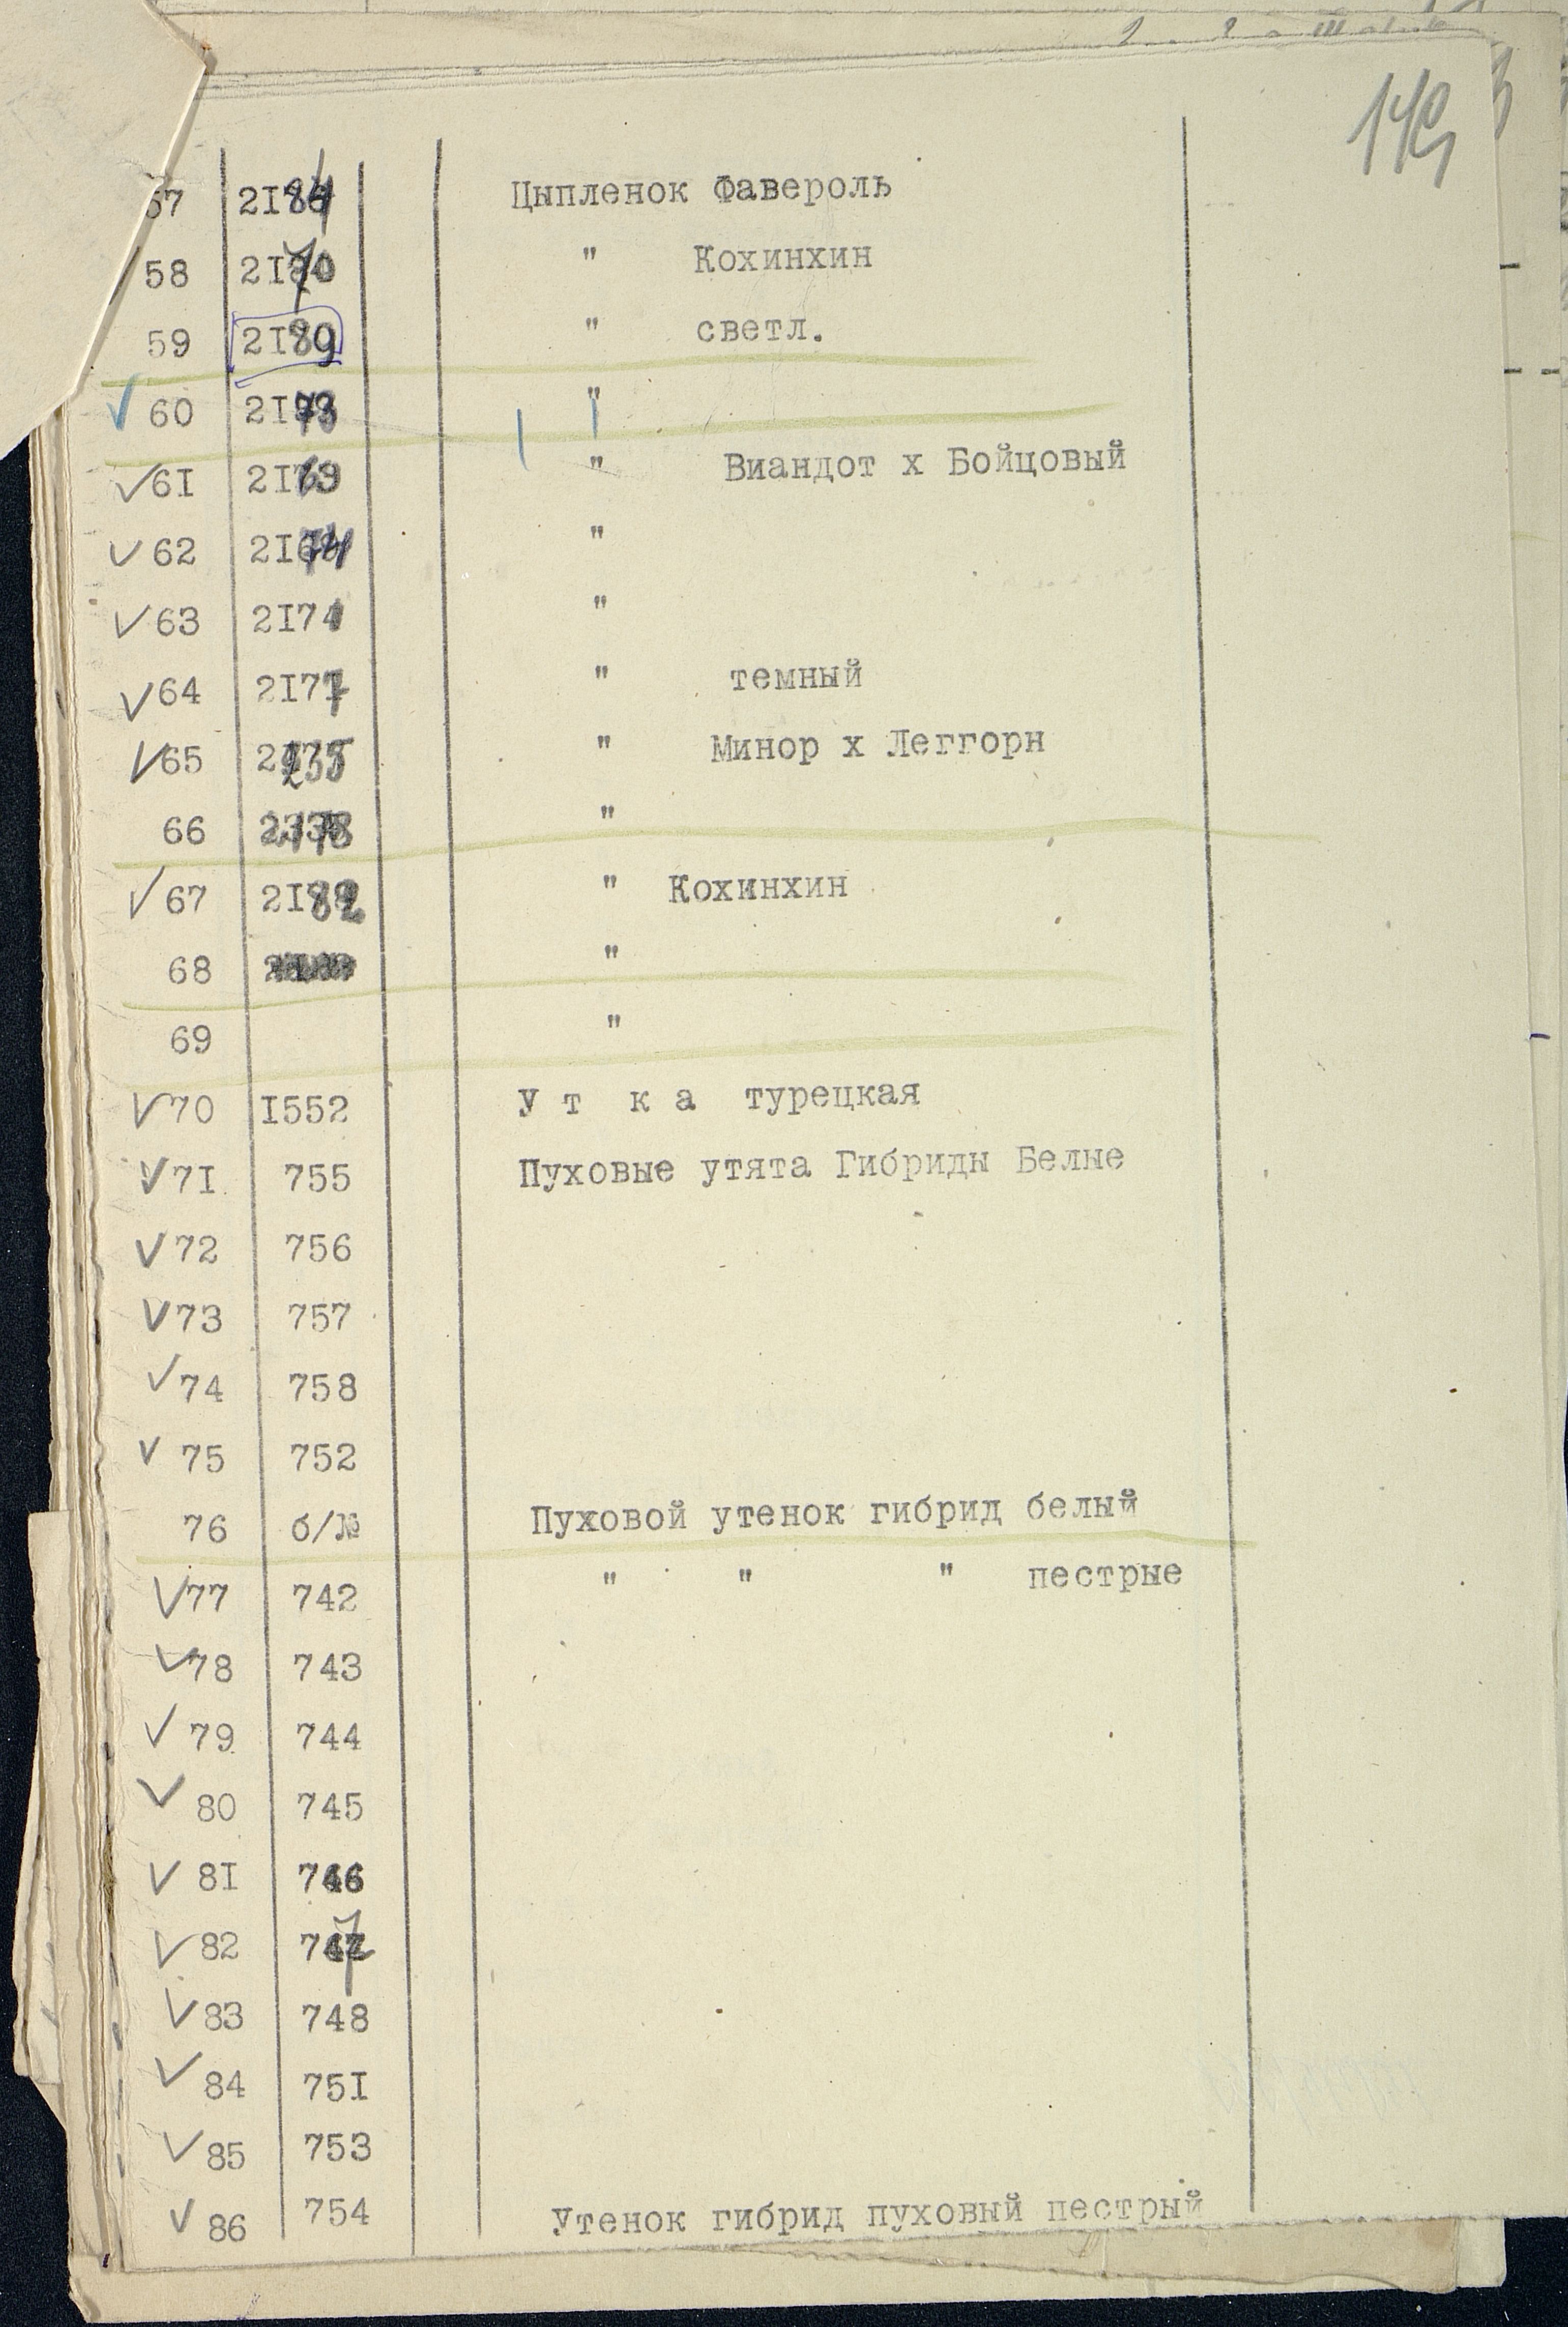 149
57 2184 Цыпленок Фавероль
58 2170 " Кохинхин
59 2189 " светл.
60 "
61 2169 " Виандот х Бойцовый
62 2174 "
63 2171 "
64 2177 " темный
65 " Минор х Леггорн
66 "
67 2182 " Кохинхин
68 "
69 "
70 I552 У т к а турецкая
7I 755 Пуховые утята Гибриды Белые
72 756
73 757
74 758
75 752
76 б/№ Пуховой утенок гибрид белый
77 742 " " " пестрые
78 743
79 744
80 745
8I 746
82 747
83 748
84 75I
85 753
86 754 Утенок гибрид пуховый пестрый